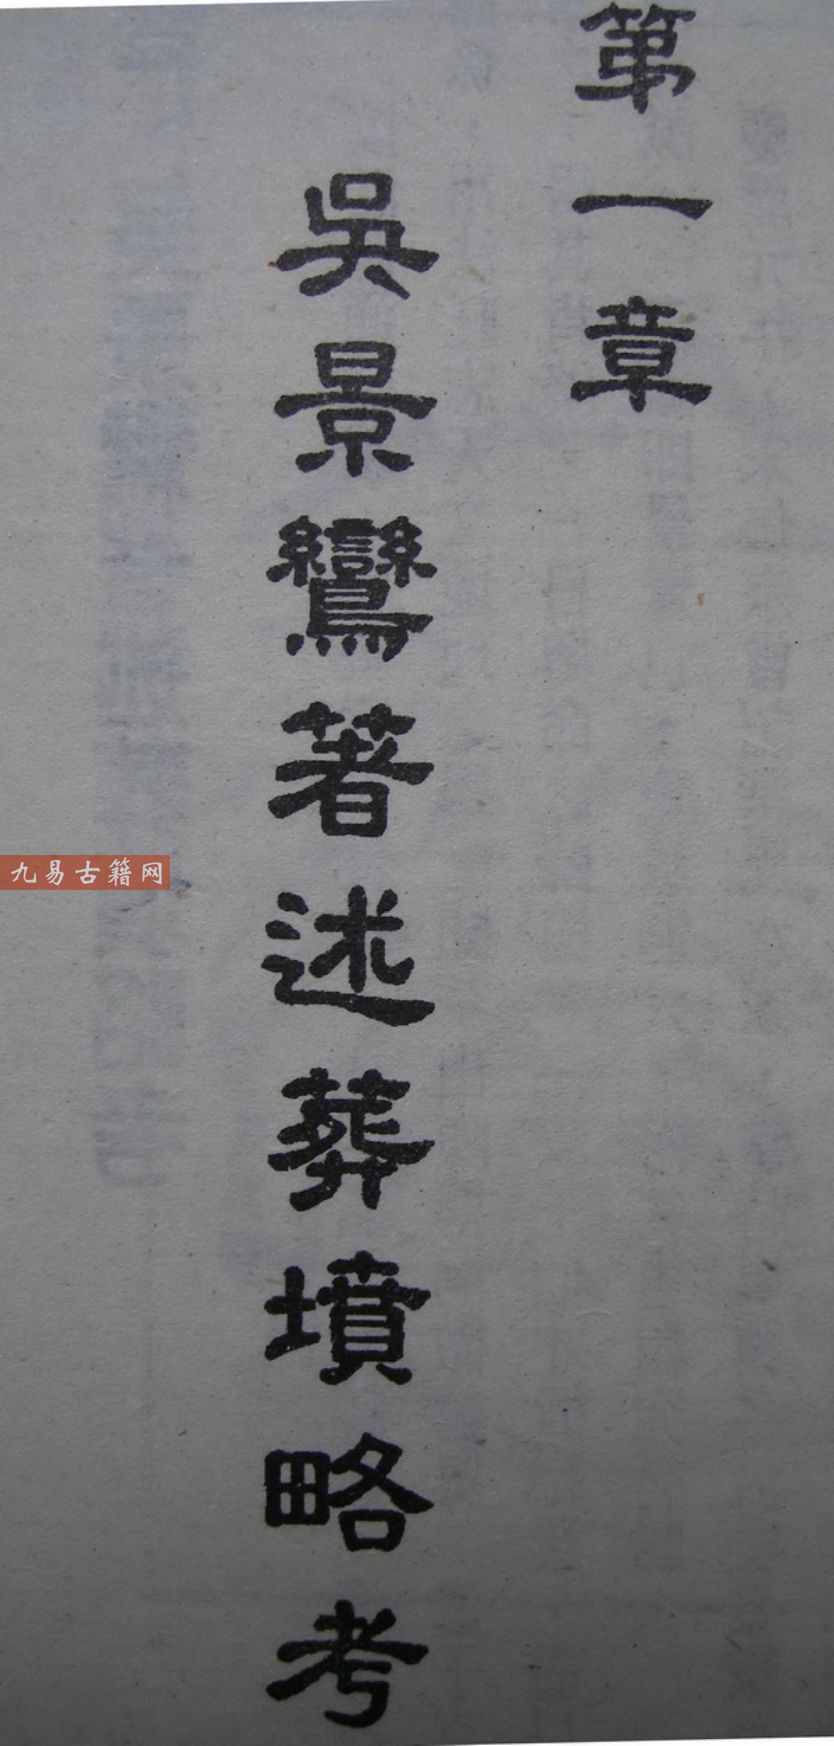 第一章
吳景鸞著述葬墳略考
九易古籍网